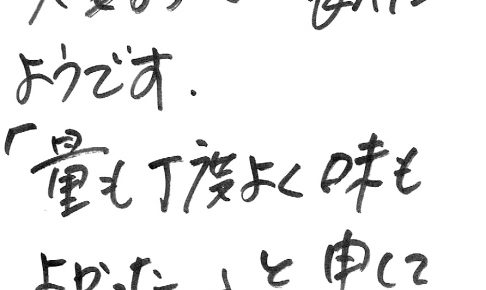 ようです.
「量も丁度よく味も
よかった」と申して